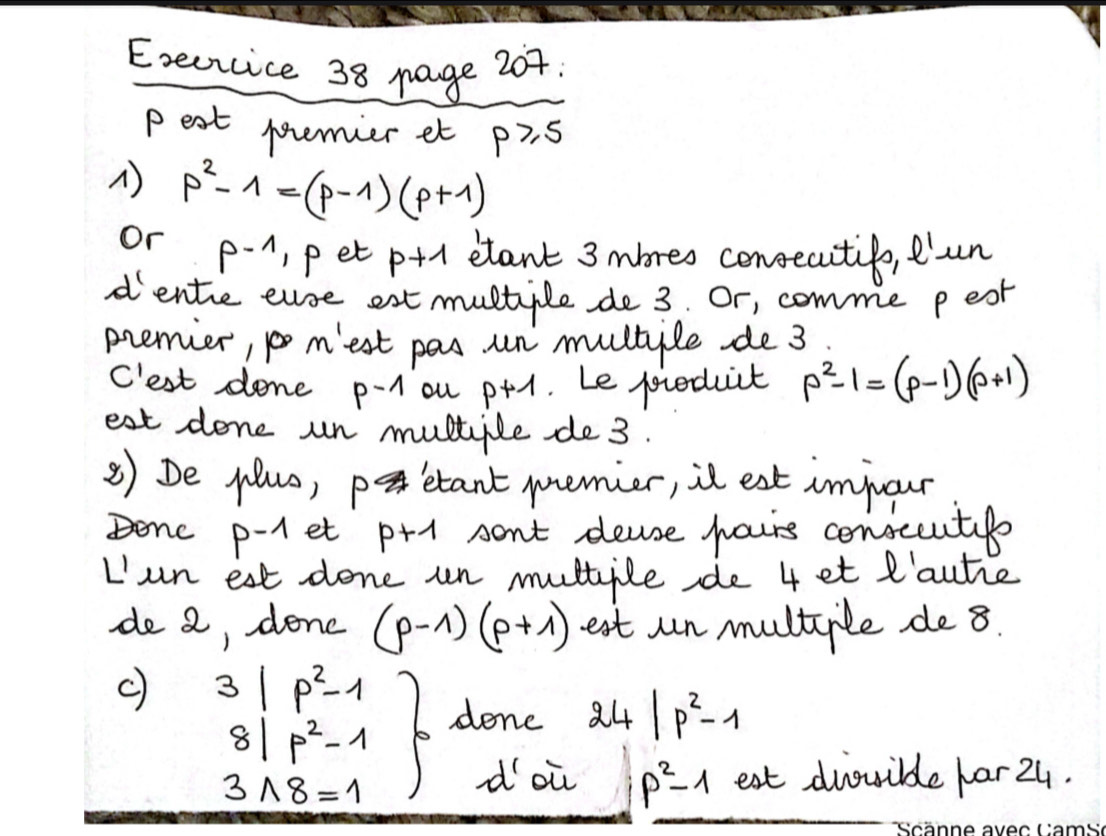 Exercice 38 page 207:
p est premier et p⩾5
1) p²-1=(p-1)(p+1)
Or p-1, p et p+1 étant 3 nbres consecutifs, l'un
d'entre eux est multiple de 3. Or, comme p est
premier, p n'est pas un multiple de 3.
C'est donc p-1 ou p+1. Le produit p²-1=(p-1)(p+1)
est donc un multiple de 3.
2) De plus, p étant premier, il est impair.
Donc p-1 et p+1 sont deux pairs consécutifs
L'un est donc un multiple de 4 et l'autre
de 2, donc (p-1)(p+1) est un multiple de 8.
c) 3 | p²-1
8 | p²-1
3 ∧ 8 = 1
donc 24 | p²-1
d'où p²-1 est divisible par 24.
Scanné avec CamSc